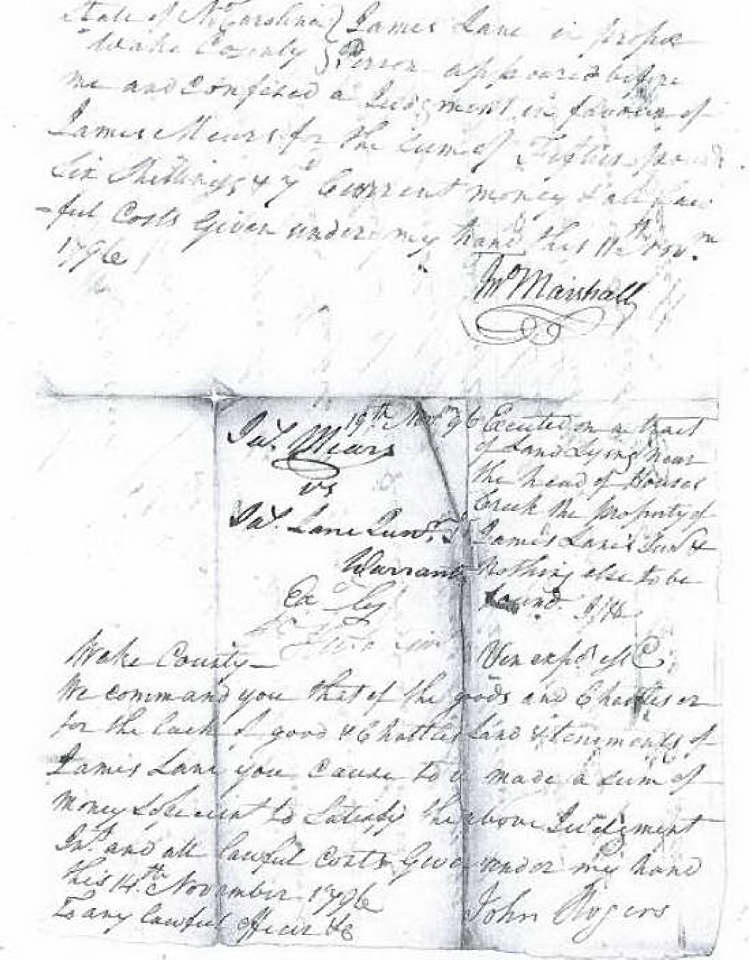 State of N Carolina } James Lane in proper
Wake County } Person appeared before
me and confesed a Judgment in favour of
James Mears for the sum of pound
Six Shillings & 7d Current money & all law
-ful Costs Given under my hand this 11th Novm
1796
Jno Marshall
19th Novr 96
Jas. Mears
vs
Jas. Lane Junr.
Warrant
Executed on a tract
of Land Lying near
the head of Houses
Creek the property of
James Lane Junr &
nothing else to be
found
Wake County—
Ven expos
We command you that of the goods and Chattles or
for the lack of good & Chattles Land & tenements of
James Lane you cause to be made a sum of
money to Satisfy the above Judgment
Int. and all lawful Costs Given under my hand
this 14th November 1796
To any lawful officer &c
John Rogers